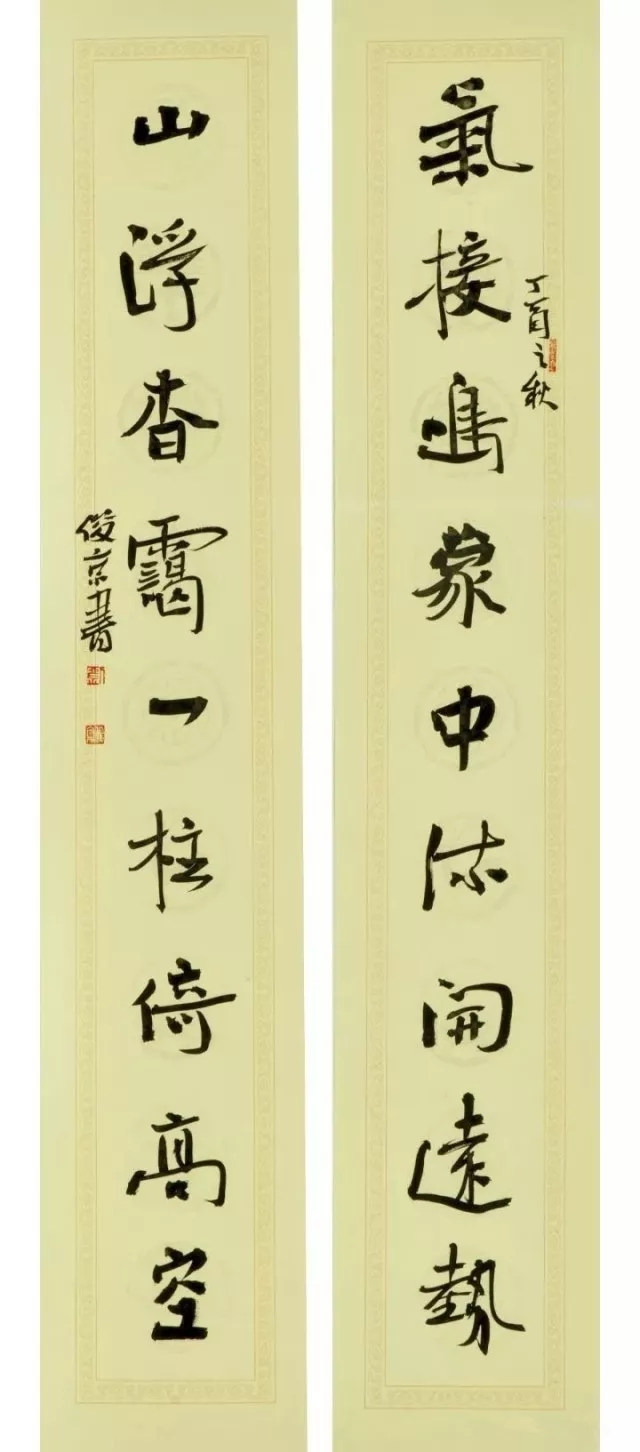 氣接鴻蒙中流開遠勢
丁酉之秋
山浮杳靄一柱倚高空
俊京書